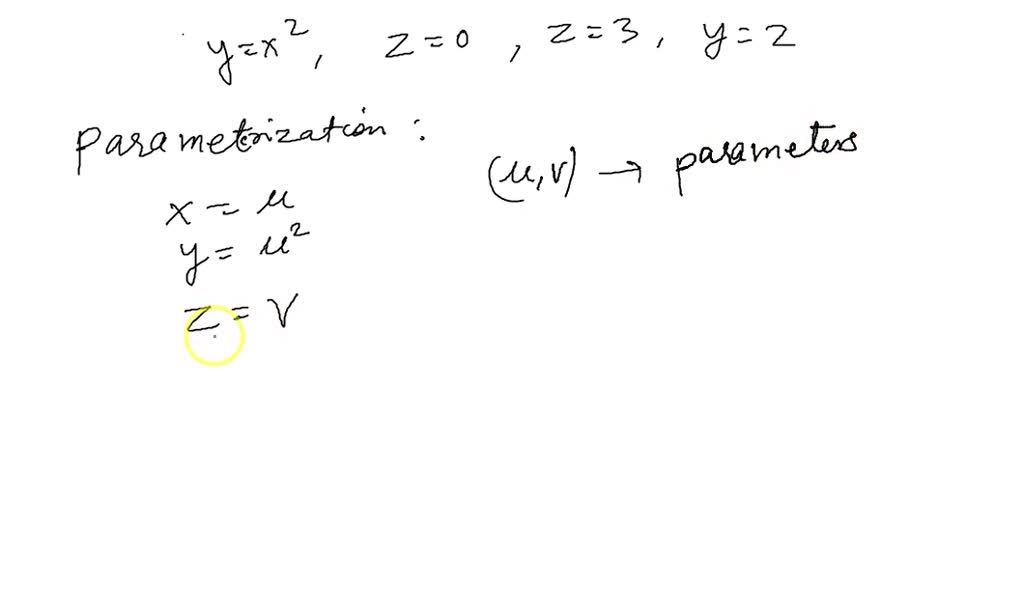 y=x², z=0, z=3, y=2
Parametrization:
(u,v) → parameters
x = u
y = u²
z = v